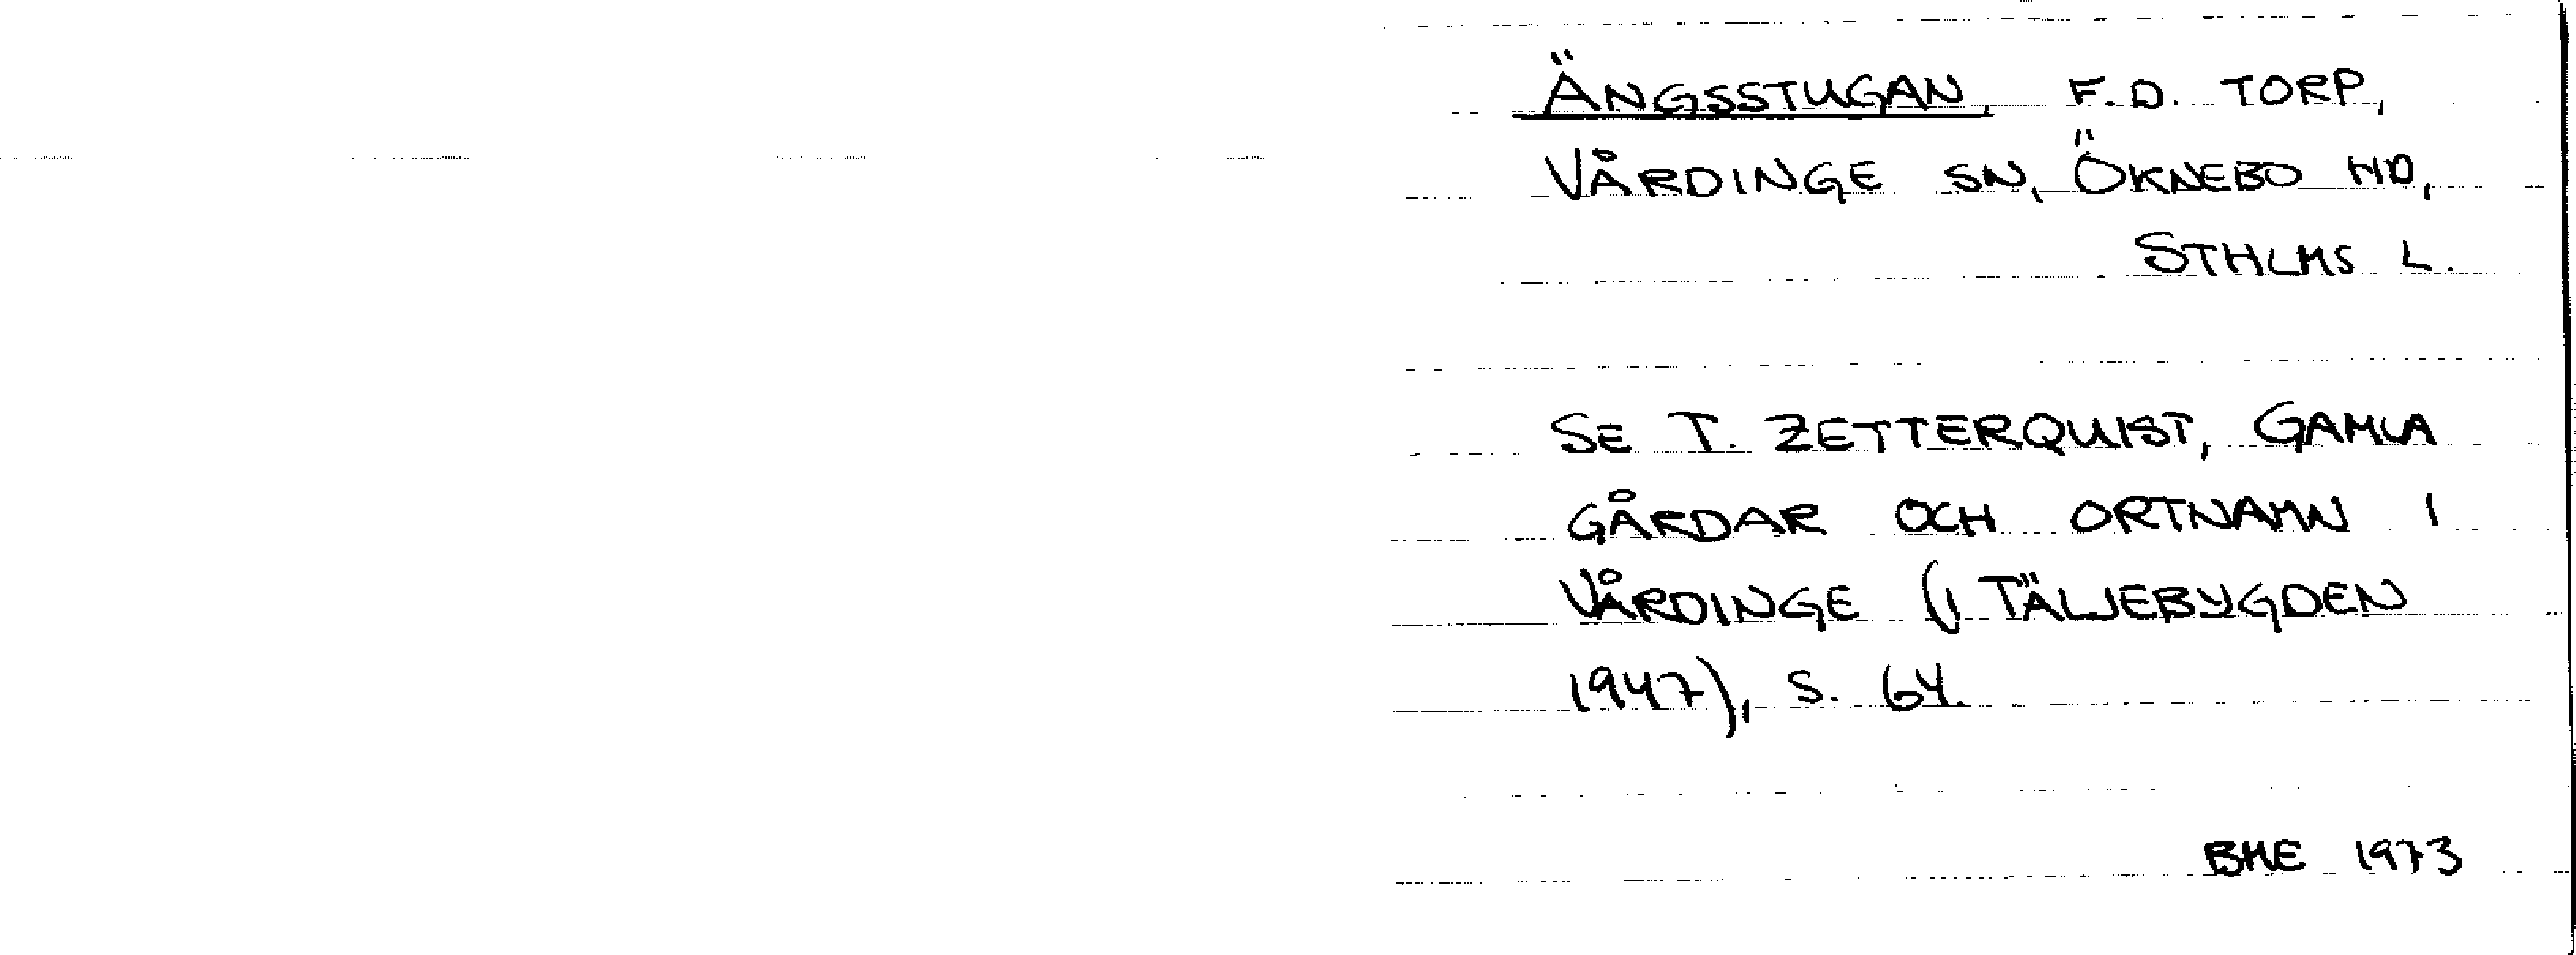 ÄNGSSTUGAN, F.D. TORP,
VÅRDINGE SN, ÖKNEBO HD,
STHLMS L.
SE T. ZETTERQUIST, GAMLA
GÅRDAR OCH ORTNAMN I
VÅRDINGE (I TÄLJEBYGDEN
1947), S. 64.
BME 1973